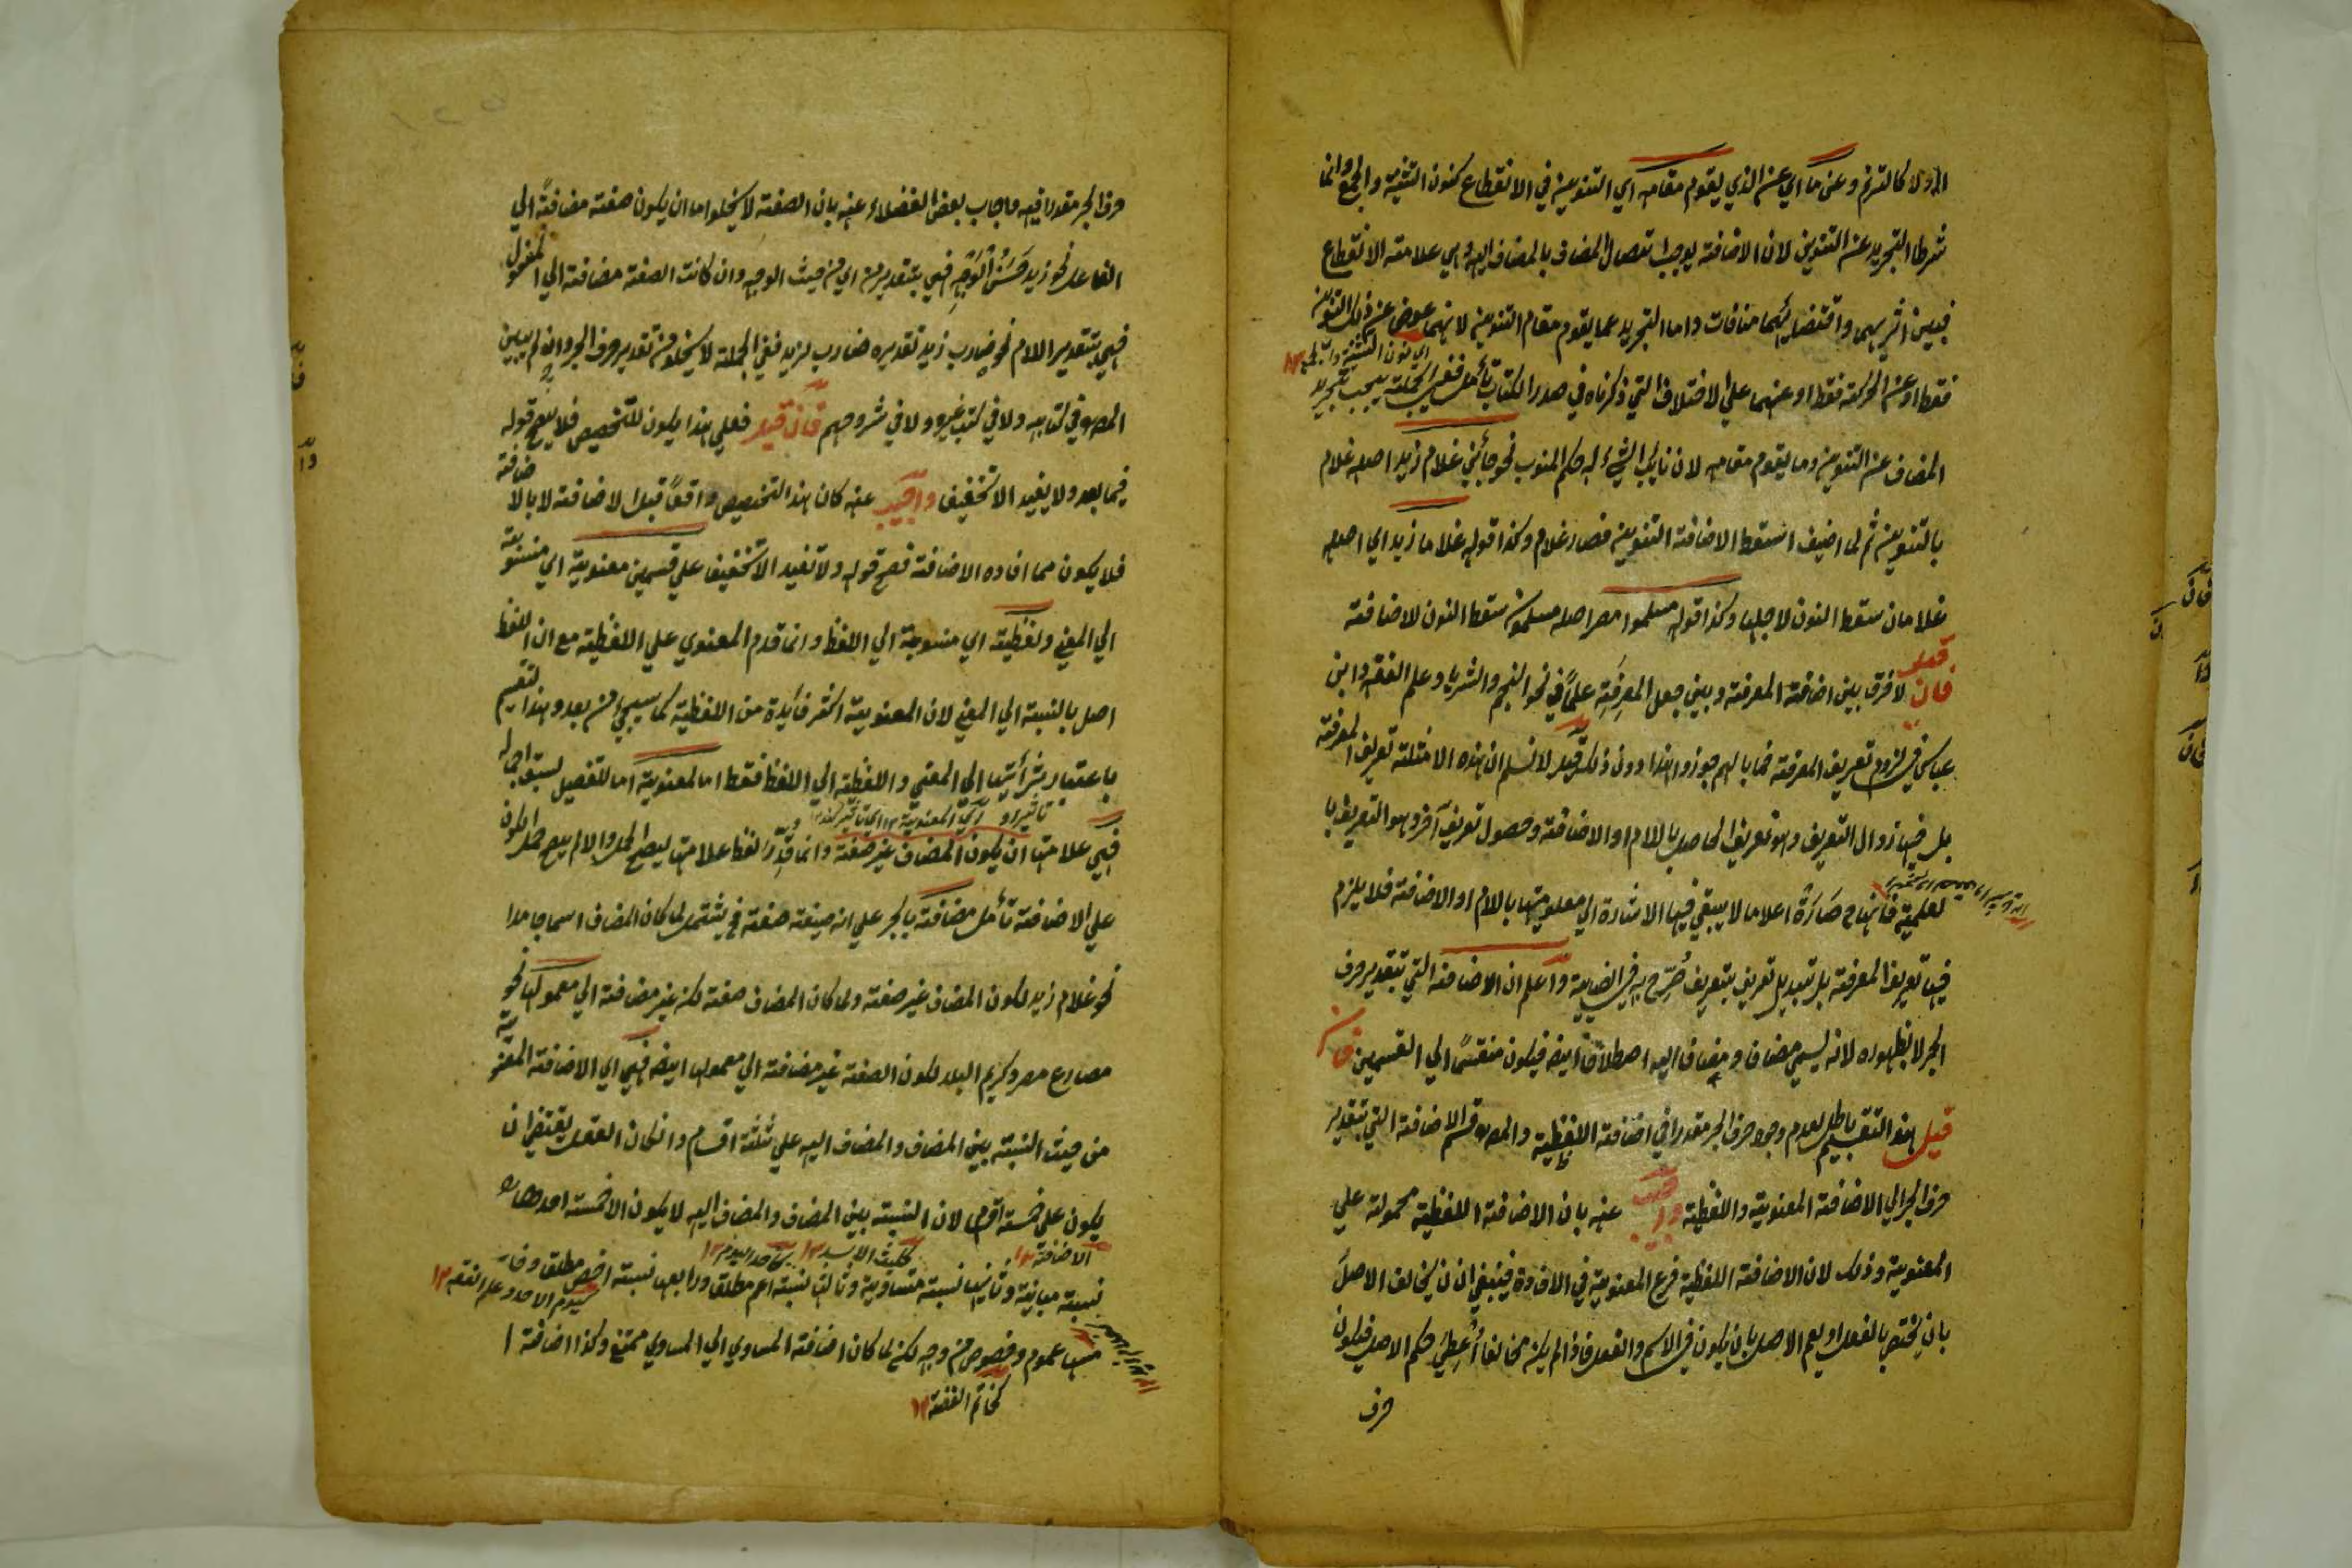 الاولا كالترنم وعن ما اي عن الذي يقوم مقامه اي التنوين في الانقطاع كنون التثنية والجمع وانما
شرط التجريد عن التنوين لان الاضافة يوجب اتصال المضاف بالمضاف اليه وهي علامة الانقطاع
فبين اثريهما واقتضائهما منافات واما التجريد عما يقوم مقام التنوين لانهما عوض عن ذلك التنوين
اي نون التثنية والجمع ١٢
فقط او عن الحركة فقط او عنهما علي الاختلاف التي ذكرناه في صدر الكتاب تأمل ففي الجملة يجب تجريد
المضاف عن التنوين وما يقوم مقامه لان نايب الشيء له حكم المنوب نحو جائني غلام زيد اصله غلام
بالتنوين ثم لما اضيف اسقط الاضافة التنوين فصار غلام وكذا قوله غلاما زيد اي اصله
غلامان سقط النون لاجلها وكذا قوله مسلموا مصر اصله مسلمون سقط النون لاضافة
فان قيل لا فرق بين اضافة المعرفة وبين جعل المعرفة علما في نحو النجم والثريا وعلم الفقه وابن
عباس في لزوم تعريف المعرفة فما بالهم جوزوا هذا دون ذلك قيل لا نسلم ان هذه الامثلة تعريف المعرفة
بل فيها زوال التعريف وهو تعريف الحاصل بالام او الاضافة وحصول تعريف آخر وهو التعريف با
لعلمية فانها ح صارة اعلاما لا يبقي فيها الاشارة الي معلوميتها بالام او الاضافة فلا يلزم
فيها تعريف المعرفة بل تبديل تعريف بتعريف صُرّح به في الضيايية واعلم ان الاضافة التي بتقدير حرف
الجر لا بظهوره لانه ليسمي مضاف ومضاف اليه اصطلاقا ايضا فيكون منقسما الي القسمين فان
قيل هذا التقسيم باطل لعدم وجود حرف الجر مقدرا في اضافة اللفظية والمصـ قسم الاضافة التي بتقدير
حرف الجر الي الاضافة المعنوية واللفظية واجيب عنه بان الاضافة اللفظية محمولة علي
المعنوية وذلك لان الاضافة اللفظية فرع المعنوية في الافادة فينبغي ان لا يخالف الاصل
بان يختص بالفعل او يعم الاصل بان يكون في الاسم والفعل فاذا لم يكن مخالفا أُعطي حكم الاصل فيكون
حرف
حرف الجر مقدرا فيه واجاب بعض الفضلاء عنه بان الصفة لا يخلوا ما ان يكون صفة مضافة الي
الفاعل نحو زيد حَسَنُ الوَجْهِ فهي بتقدير من اي من حيث الوجه وان كانت الصفة مضافة الي المفعول
فهي بتقدير الام نحو ضارب زيد تقديره ضارب لزيد ففي الجملة لا يخلو من تقدير حرف الجر وان لم يبين
المصـ في كتابه ولا في كتب غيره ولا في شروحهم فان قيل فعلي هذا يكون للتخصيص فلا يصح قوله
فيما بعد ولا يفيد الا تخفيف واجيب عنه كان هذا التخصيص واقعا قبل الاضافة لا بالاضافة
فلا يكون مما افاده الاضافة فصح قوله ولا تفيد الا تخفيف علي قسمين معنوية اي منسوبة
الي المعني ولفظية اي منسوبة الي اللفظ وانما قدم المعنوي علي اللفظية مع ان اللفظ
اصل بالنسبة الي المعني لان المعنوية اكثر فايدة من اللفظية كما سيجيء من بعد وهذا التقسيم
باعتبار تأثيراتها الي المعني واللفظية الي اللفظ فقط اما لمعنوية اما للتفصيل لسبق اجماله
فهي علامتها ان يكون المضاف غير صفة وانما قدّر لفظ علامتها ليصح الحمل والا لم يصح حمل الكون
علي الاضافة تأمل مضافة بالجر علي انه صيغة صفة فح يشتمل لما كان المضاف اسما جامدا
نحو غلام زيد لكون المضاف غير صفة ولما كان المضاف صفة لكن غير مضافة الي معمولها نحو
مصارع مصر وكريم البلد لكون الصفة غير مضافة الي معمولها ايضا فهي اي الاضافة المعنوية
من حيث النسبة بين المضاف والمضاف اليه علي ثلثة اقسام وان كان العقل يقتضي ان
يكون علي خمسة اقسام لان النسبة بين المضاف والمضاف اليه لا يكون الا خمسة احدها
الاضافة ١٢ كليث الاسد ١٢ كاحد اليوم ١٢
نسبة مباينة وثانيها نسبة متساوية وثالثها نسبة اعم مطلق ورابعها نسبة اخص مطلق وخا
كيوم الاحد وعلم الفقه ١٢
مسها عموم وخصوص من وجه لكن لما كان اضافة المساوي الي المساوي ممتنع وكذا اضافة ا
كخاتم الفضة ١٢